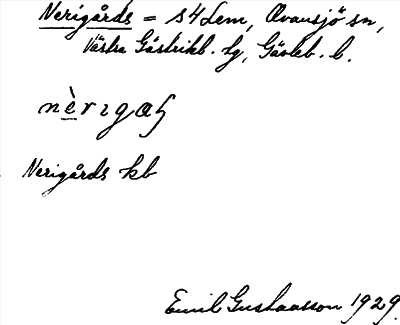 Nerigårds = s4Lem, Ovansjö sn,
Västra Gästrikl. tg, Gävleb. l.
nèrıgaʂ
Nerigårds kb
Emil Gustavsson 1929.